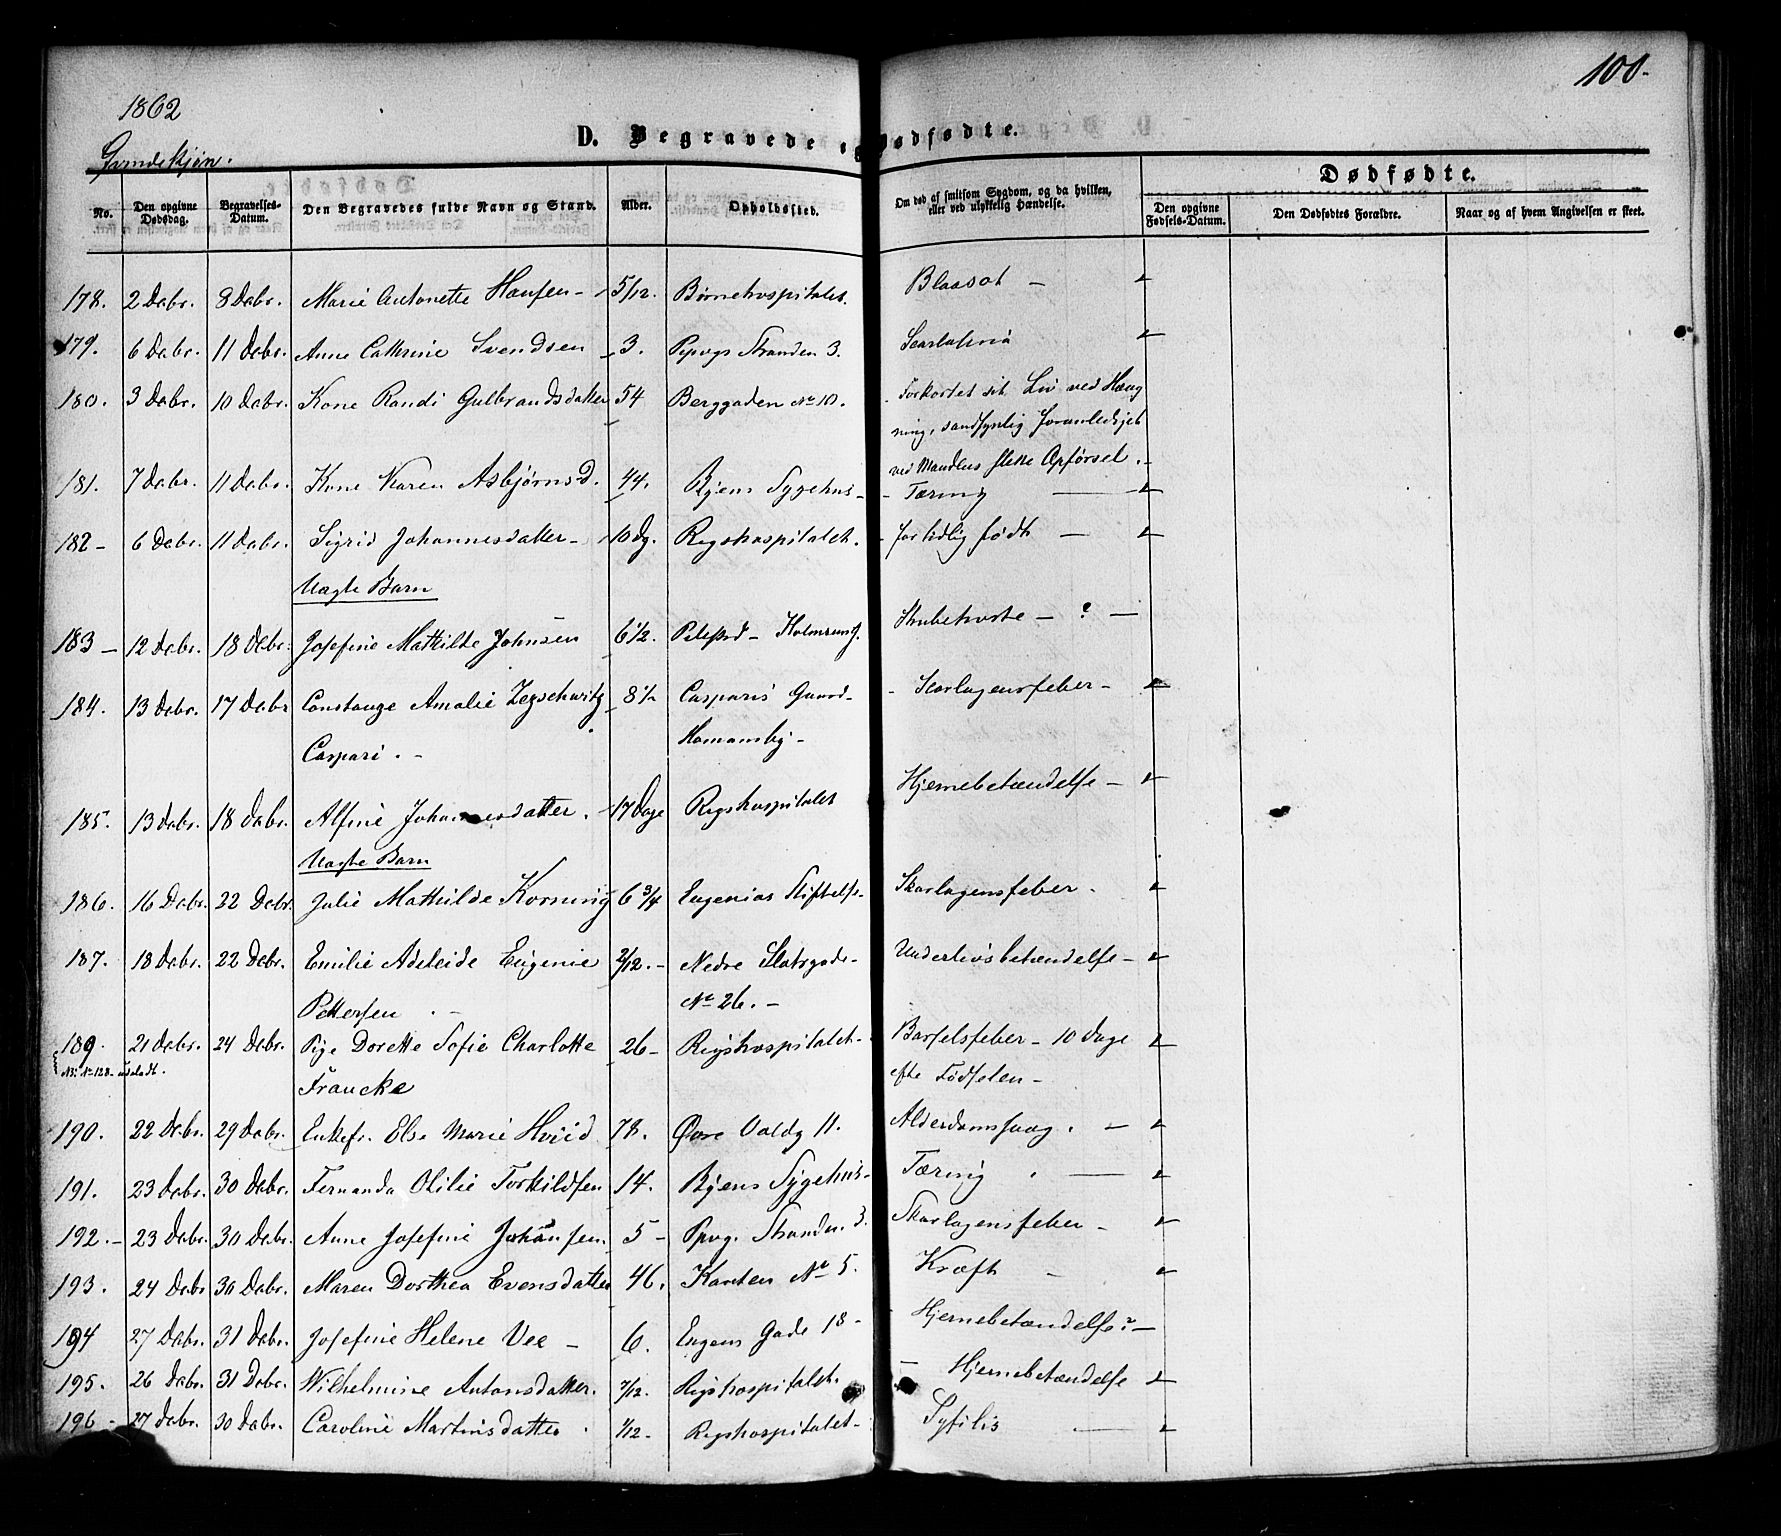 1862
100.
Qvindekjøn.
D. Begravede og Dødfødte.
No. | Den opgivne Dødsdag. | Begravelses-Datum. | Den Begravedes fulde Navn og Stand. | Alder. | Opholdssted. | Om død af smitsom Sygdom, og da hvilken, eller ved ulykkelig Hændelse. | Dødfødte. | Den opgivne Fødsels-Datum. | Den Dødfødtes Forældre. | Naar og af hvem Angivelsen er skeet.
178. 2 Decbr. 8 Decbr. Marie Antonette Hansen - 5/12. Børnehospitalet. Blaasot -
179. 6 Decbr. 11 Decbr. Anne Cathrine Svendsen 3. Pipvgs Stranden 3. Scarlatina
180. 3 Decbr. 10 Decbr. Kone Randi Gulbrandsdatter 54 Berggaden No 10. Forkortet sit Liv ved Hæng
ning, sandsynlig foranlediget
ved Mandens slette Opførsel.
181. 7 Decbr. 11 Decbr. Kone Karen Asbjørnsd. 44. Byens Sygehus - Tæring
182 - 6 Decbr. 11 Decbr. Sigrid Johannesdatter - 10 Dg. Rigshospitalet. for tidlig født -
Uægte Barn
183 - 12 Decbr. 18 Decbr. Josefine Mathilde Johnsen 6 1/2. Pilestrd - Strubehoste - ? -
184. 13 Decbr. 17 Decbr Constange Amalie Zezschwitz 8 1/2 Casparis Gaard - Scarlagensfeber -
Caspari. - Homansby -
185. 13 Decbr. 18 Decbr. Alfine Johannesdatter. 17 Dage Rigshospitalet Hjernebetændelse -
Uægte Barn
186. 16 Decbr. 22 Decbr. Julie Mathilde Korning 6 3/4 Eugenias Stiftelse. Skarlagensfeber.
187. 18 Decbr. 22 Decbr. Emilie Adeleide Eugenie 2/12. - Nedre Slotsgade - Underlivsbetændelse -
Pettersen. - No 26. -
189. 21 Decbr. 24 Decbr. Pige Dorette Sofie Charlotte 26 - Rigshospitalet - Barselsfeber - 10 Dage
Francke efter Fødselen -
190. 22 Decbr. 29 Decbr. Enkefr. Else Marie Hviid 78. Øvre Voldg 11. Alderdomssvag. -
191. 23 Decbr. 30 Decbr. Fernanda Otilie Torkildsen 14. Byens Sygehus - Tæring.
192. - 23 Decbr. 30 Decbr. Anne Josefine Johansen. 5 - Ppvg. Stranden 3. Skarlagensfeber -
193. 24 Decbr. 30 Decbr. Maren Dorthea Evensdatter 46. Kanten No 5. Kræft -
194 27 Decbr. 31 Decbr. Josefine Helene Vee - 6. Engens Gade 18 - Hjernebetændelse? -
195. 26 Decbr. 31 Decbr. Wilhelmine Antonsdatter. 7/12. Rigshospitalet. - Hjernebetændelse
196 - 27 Decbr. 30 Decbr. Caroline Martinsdatter. 1/12 - Rigshospitalet - Syfilis